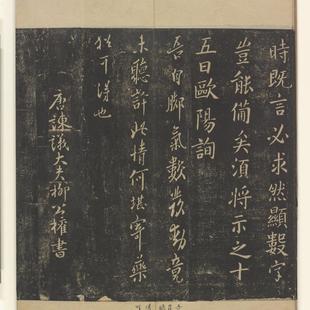 時既言必求然顯數字
豈能備矣須將示之十
五日歐陽詢
吾自脚氣數發動竟
未聽許此情何堪寄藥
猶可得也
唐諫議大夫柳公權書